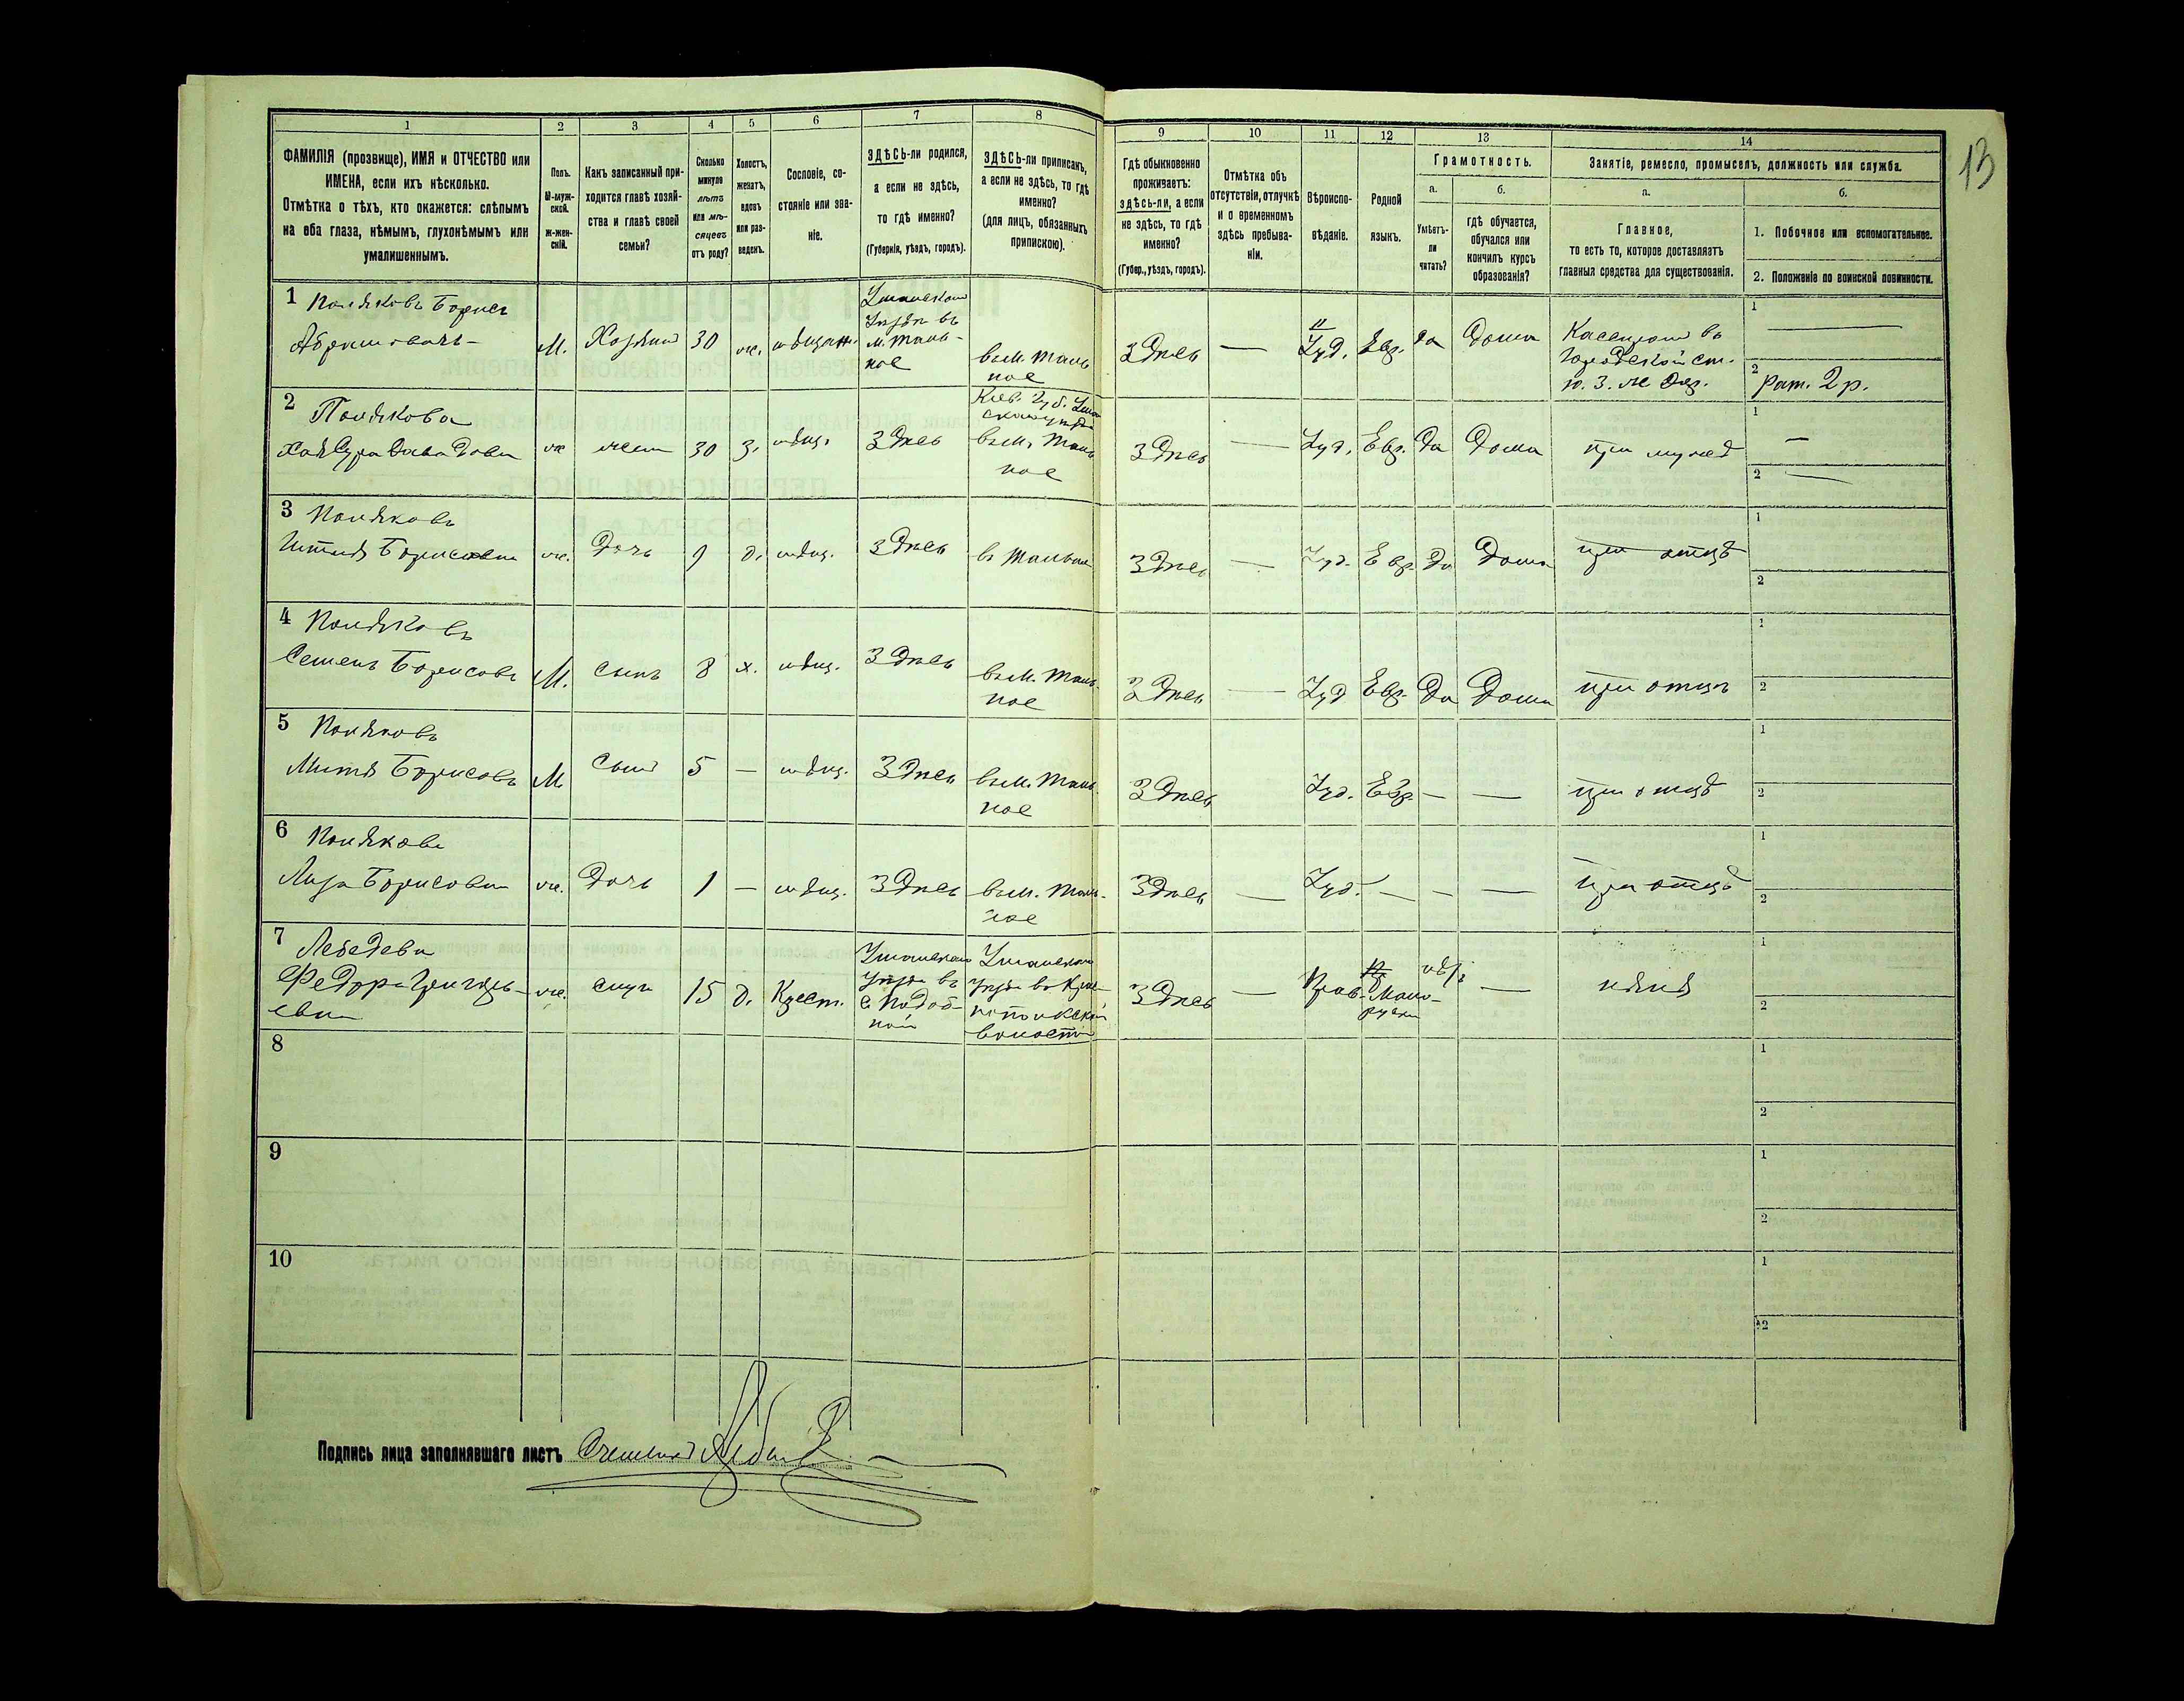 13
1 2 3 4 5 6 7 8 9 10 11 12 13 14
ФАМИЛІЯ (прозвище), ИМЯ и ОТЧЕСТВО или
ИМЕНА, если ихъ нѣсколько.
Отмѣтка о тѣхъ, кто окажется: слѣпымъ
на оба глаза, нѣмымъ, глухонѣмымъ или
умалишеннымъ.
Полъ.
М-муж-
ской.
Ж-жен-
скій.
Какъ записанный при-
ходится главѣ хозяй-
ства и главѣ своей
семьи?
Сколько
минуло
лѣтъ
или мѣ-
сяцевъ
отъ роду?
Холостъ,
женатъ,
вдовъ
или раз-
веденъ.
Сословіе, со-
стояніе или зва-
ніе.
ЗДѢСЬ-ли родился,
а если не здѣсь,
то гдѣ именно?
(Губернія, уѣздъ, городъ).
ЗДѢСЬ-ли приписанъ,
а если не здѣсь, то гдѣ
именно?
(для лицъ, обязанныхъ
припискою).
Гдѣ обыкновенно
проживаетъ:
здѣсь-ли, а если
не здѣсь, то гдѣ
именно?
(Губер., уѣздъ, городъ).
Отмѣтка объ
отсутствіи, отлучкѣ
и о временномъ
здѣсь пребыва-
ніи.
Вѣроиспо-
вѣданіе.
Родной
языкъ.
Грамотность.
а.
Умѣетъ-
ли
читать?
б.
гдѣ обучается,
обучался или
кончилъ курсъ
образованія?
Занятіе, ремесло, промыселъ, должность или служба.
а.
Главное,
то есть то, которое доставляетъ
главныя средства для существованія.
б.
1. Побочное или вспомогательное.
2. Положеніе по воинской повинности.
1 Поляковъ Борисъ
Абрамовичъ
М. Хозяинъ 30 ж. мѣщан.
Уманскаго
Уѣзда въ
м. Таль-
ное
въ м. Таль
ное
Здѣсь — Іуд. Евр. да Дома
въ
Городской ст.
1 —
2 рат. 2 р.
2 Полякова
Хая Сура Давидова
ж жена 30 з. мѣщ. Здѣсь
Кіев. Губ. Уман
скаго уѣзда
въ м. Таль
ное
Здѣсь — Іуд. Евр. Да Дома при мужѣ
1 —
2 —
3 Поляковъ
Борисовна
ж. Дочь 9 д. мѣщ. Здѣсь въ Тальное Здѣсь — Іуд. Евр. Да Дома при отцѣ
1
2
4 Поляковъ
Семенъ Борисовъ
М. сынъ 8 х. мѣщ. Здѣсь
въ м. Таль-
ное
Здѣсь — Іуд Евр. Да Дома при отцѣ
1
2
5 Поляковъ
Митя Борисовъ
М сынъ 5 — мѣщ. Здѣсь
въ м. Таль-
ное
Здѣсь Іуд. Евр. — — при отцѣ
1
2
6 Полякова
Лиза Борисовна
ж. Дочь 1 — мѣщ. Здѣсь
въ м. Таль-
ное
Здѣсь — Іуд. — — — при отцѣ
1
2
7 Лебедева
Федора Григорь-
евна
ж. слуга 15 д. Крест.
Уманскаго
Уѣзда въ
с. Подоб-
ной
Уманскаго
Уѣзда въ
волости
Здѣсь — Прав.
Мало-
русск.
нѣтъ — няня
1
2
8
1
2
9
1
2
10
1
2
Подпись лица заполнявшаго листъ